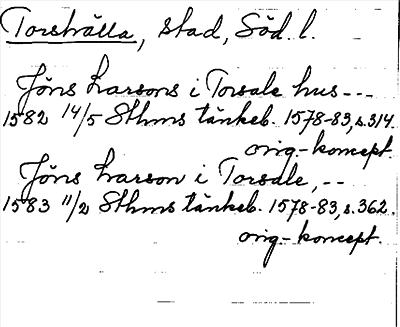 Torshälla, stad, Söd. l.
Jöns Larsons i Torsale hus ---
1582 14/5 Sthms tänkeb. 1578-83, s. 314.
orig.-koncept.
Jöns Larson i Torsdle, --
1583 11/2 Sthms tänkeb. 1578-83, s. 362.
orig-koncept.